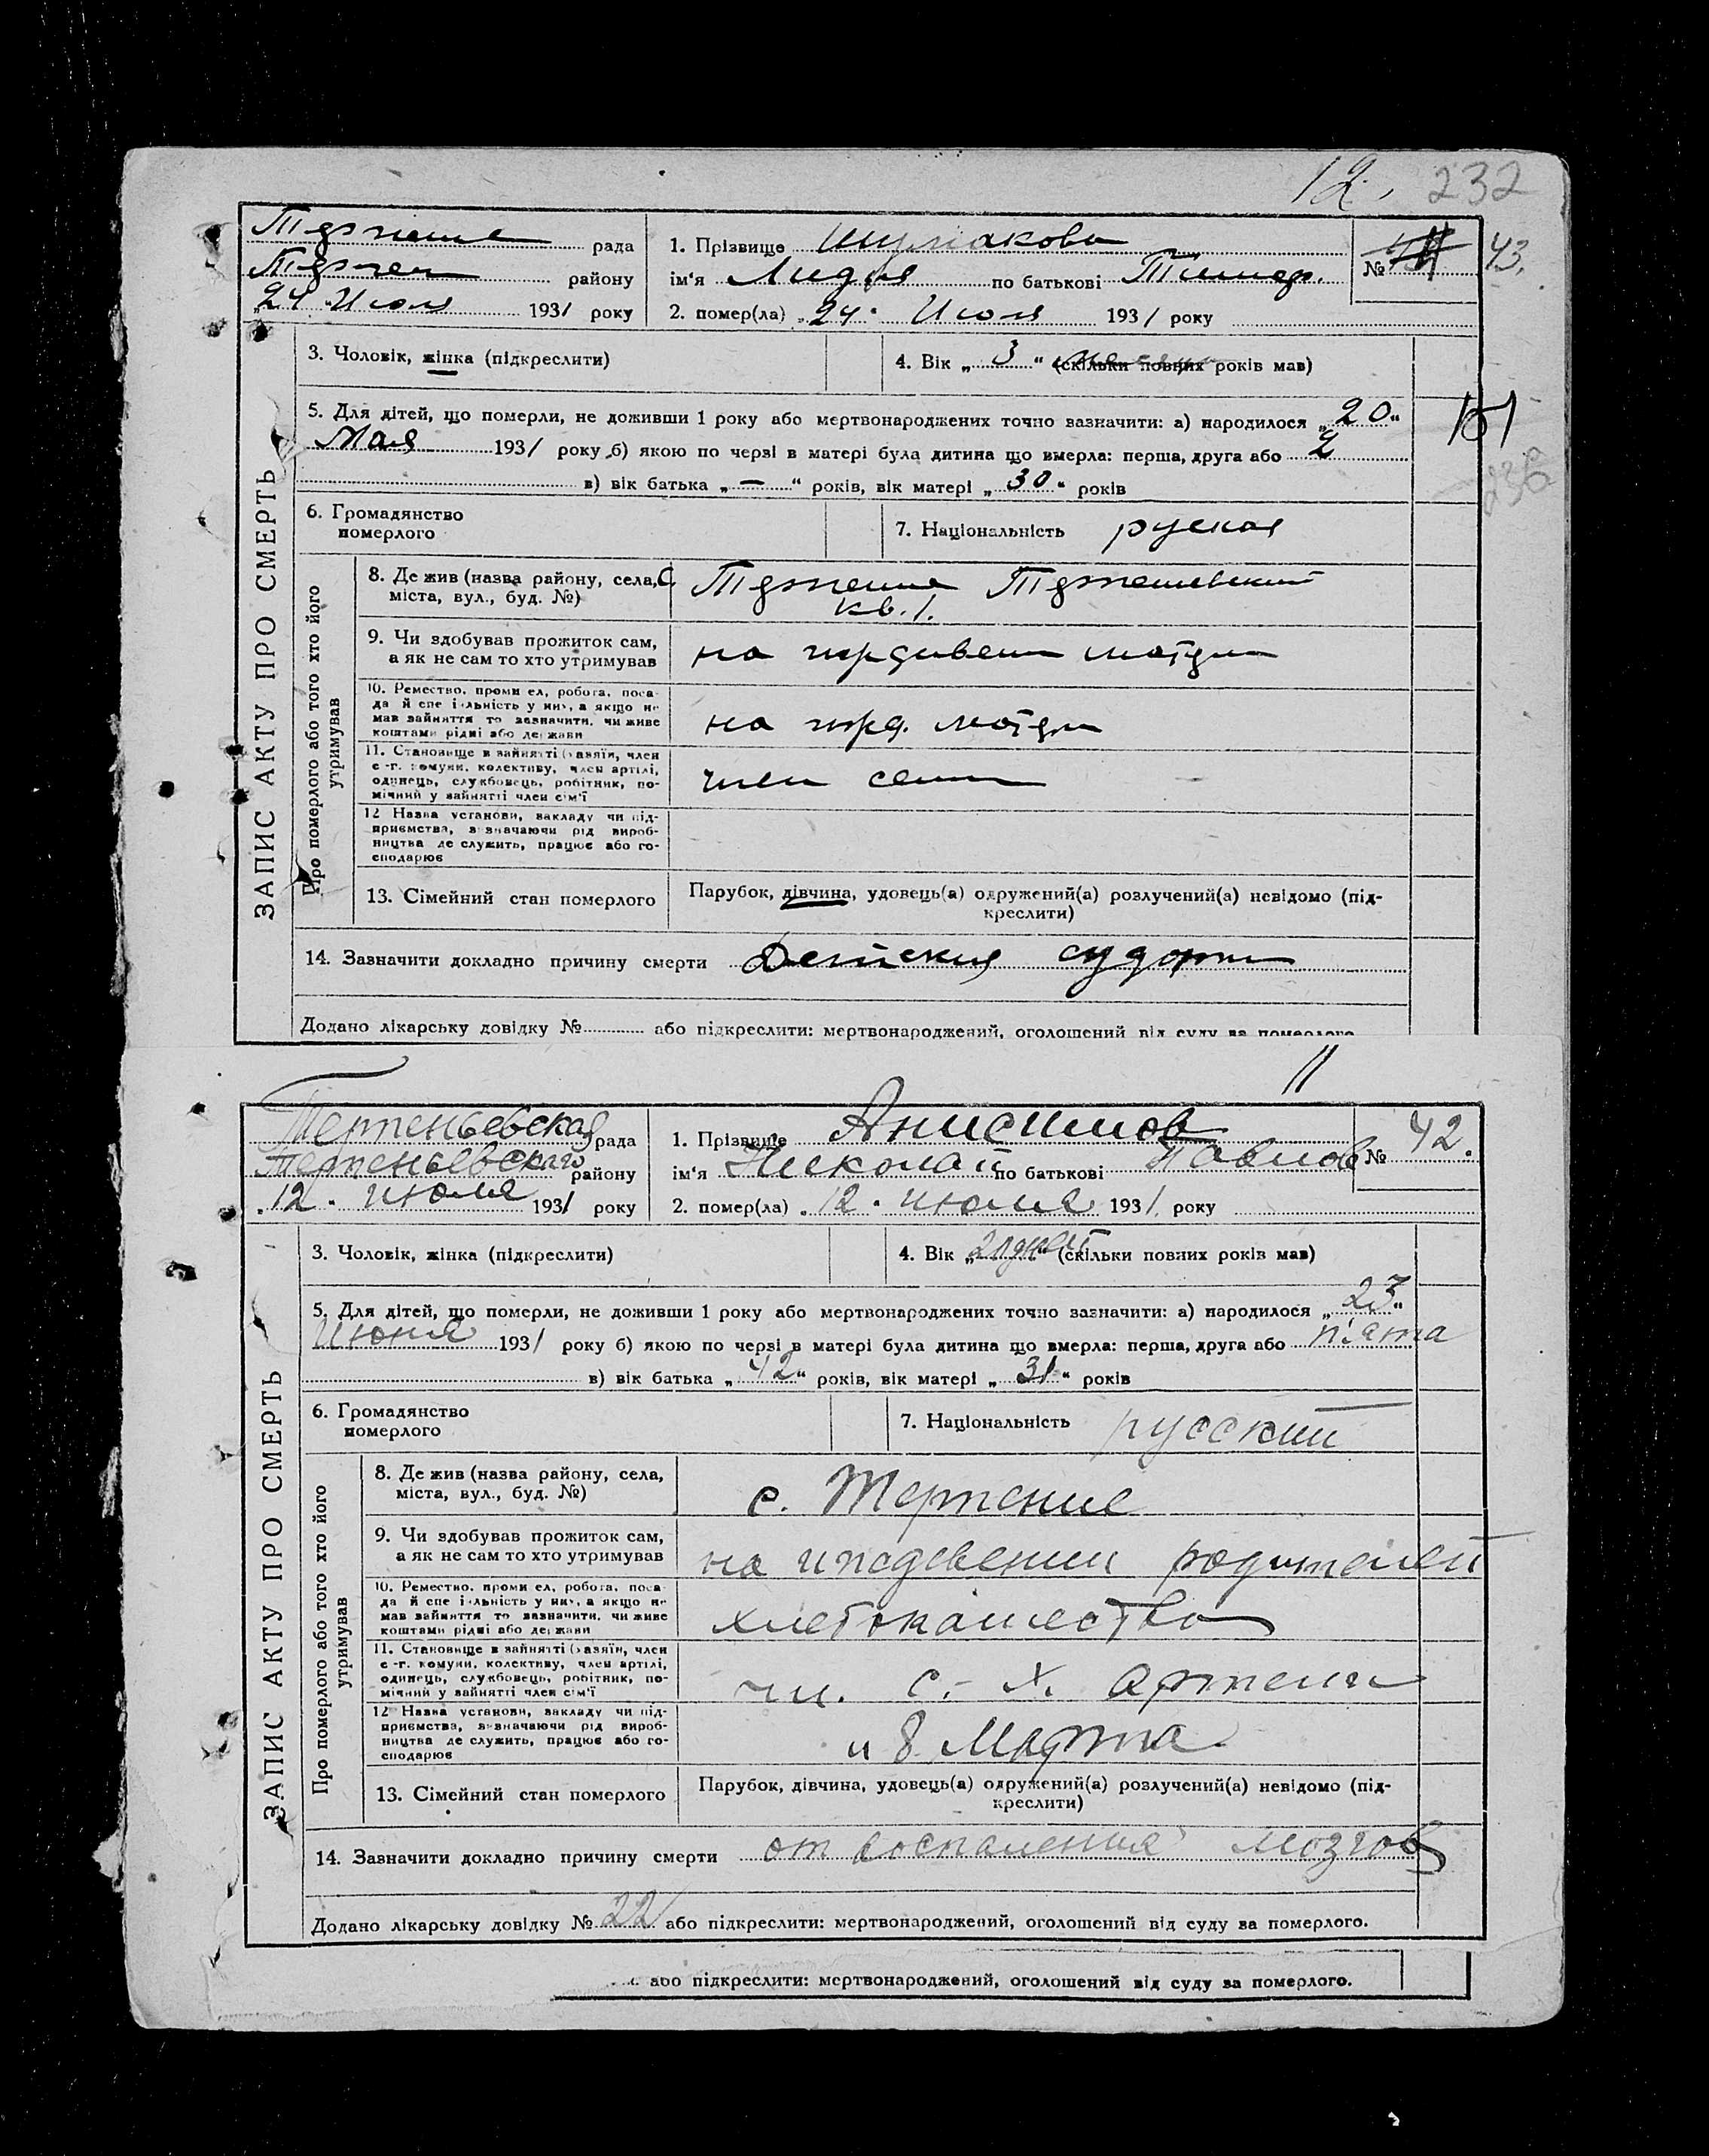 12. 232
Терпение рада
Терпен района району
24 Июля 1931 року
1. Прізвище Шумакова
ім'я Лидия по батькові Тимоф.
№ 43.
2. помер(ла) „24" Июля 1931 року
ЗАПИС АКТУ ПРО СМЕРТЬ
3. Чоловік, жінка (підкреслити)
4. Вік „3" месяца (скільки повних років мав)
5. Для дітей, що померли, не доживши 1 року або мертвонароджених точно зазначити: а) народилося „20"
Мая 1931 року б) якою по черзі в матері була дитина що вмерла: перша, друга або 2
в) вік батька „—" років, вік матері „30" років
6. Громадянство
померлого
7. Національність руская
Про померлого або того хто його
утримував
8. Де жив (назва району, села,
міста, вул., буд. №)
с Терпение Терпеньевский
кв. 1.
9. Чи здобував прожиток сам,
а як не сам то хто утримував
на иждивении матери
10. Ремество, промисел, робота, поса-
да й спеціяльність у них, а якщо не
мав зайняття то зазначити, чи живе
коштами рідні або держави
на ижд. матери
11. Становище в зайнятті (хазяїн, член
с.-г. комуни, колективу, член артілі,
одинець, службовець, робітник, по-
мічний у зайнятті член сім'ї
член семи
12 Назва установи, закладу чи під-
приємства, зазначаючи рід вироб-
ництва де служить, працює або го-
сподарює
13. Сімейний стан померлого
Парубок, дівчина, удовець(а) одружений(а) розлучений(а) невідомо (під-
креслити)
14. Зазначити докладно причину смерти Детския судорги
Додано лікарську довідку № або підкреслити: мертвонароджений, оголошений від суду за померлого
11
Терпеньевская рада
Терпеньевскаго району
12. июля 1931 року
1. Прізвище Анисимов
ім'я Николай по батькові Павлов
№ 42.
2. помер(ла) „12" июля 1931. року
ЗАПИС АКТУ ПРО СМЕРТЬ
3. Чоловік, жінка (підкреслити)
4. Вік „ " (скільки повних років мав)
5. Для дітей, що померли, не доживши 1 року або мертвонароджених точно зазначити: а) народилося „23"
Июня 1931 року б) якою по черзі в матері була дитина що вмерла: перша, друга або п'ята
в) вік батька „42" років, вік матері „31" років
6. Громадянство
померлого
7. Національність русский
Про померлого або того хто його
утримував
8. Де жив (назва району, села,
міста, вул., буд. №)
с. Терпение
9. Чи здобував прожиток сам,
а як не сам то хто утримував
на иждевении родителей
10. Ремество, промисел, робота, поса-
да й спеціяльність у них, а якщо не
мав зайняття то зазначити, чи живе
коштами рідні або держави
хлебопашество
11. Становище в зайнятті (хазяїн, член
с.-г. комуни, колективу, член артілі,
одинець, службовець, робітник, по-
мічний у зайнятті член сім'ї
чл. с.-х. артели
12 Назва установи, закладу чи під-
приємства, зазначаючи рід вироб-
ництва де служить, працює або го-
сподарює
и 8 Марта
13. Сімейний стан померлого
Парубок, дівчина, удовець(а) одружений(а) розлучений(а) невідомо (під-
креслити)
14. Зазначити докладно причину смерти от воспаления мозгов
Додано лікарську довідку № 22 або підкреслити: мертвонароджений, оголошений від суду за померлого.
або підкреслити: мертвонароджений, оголошений від суду за померлого.